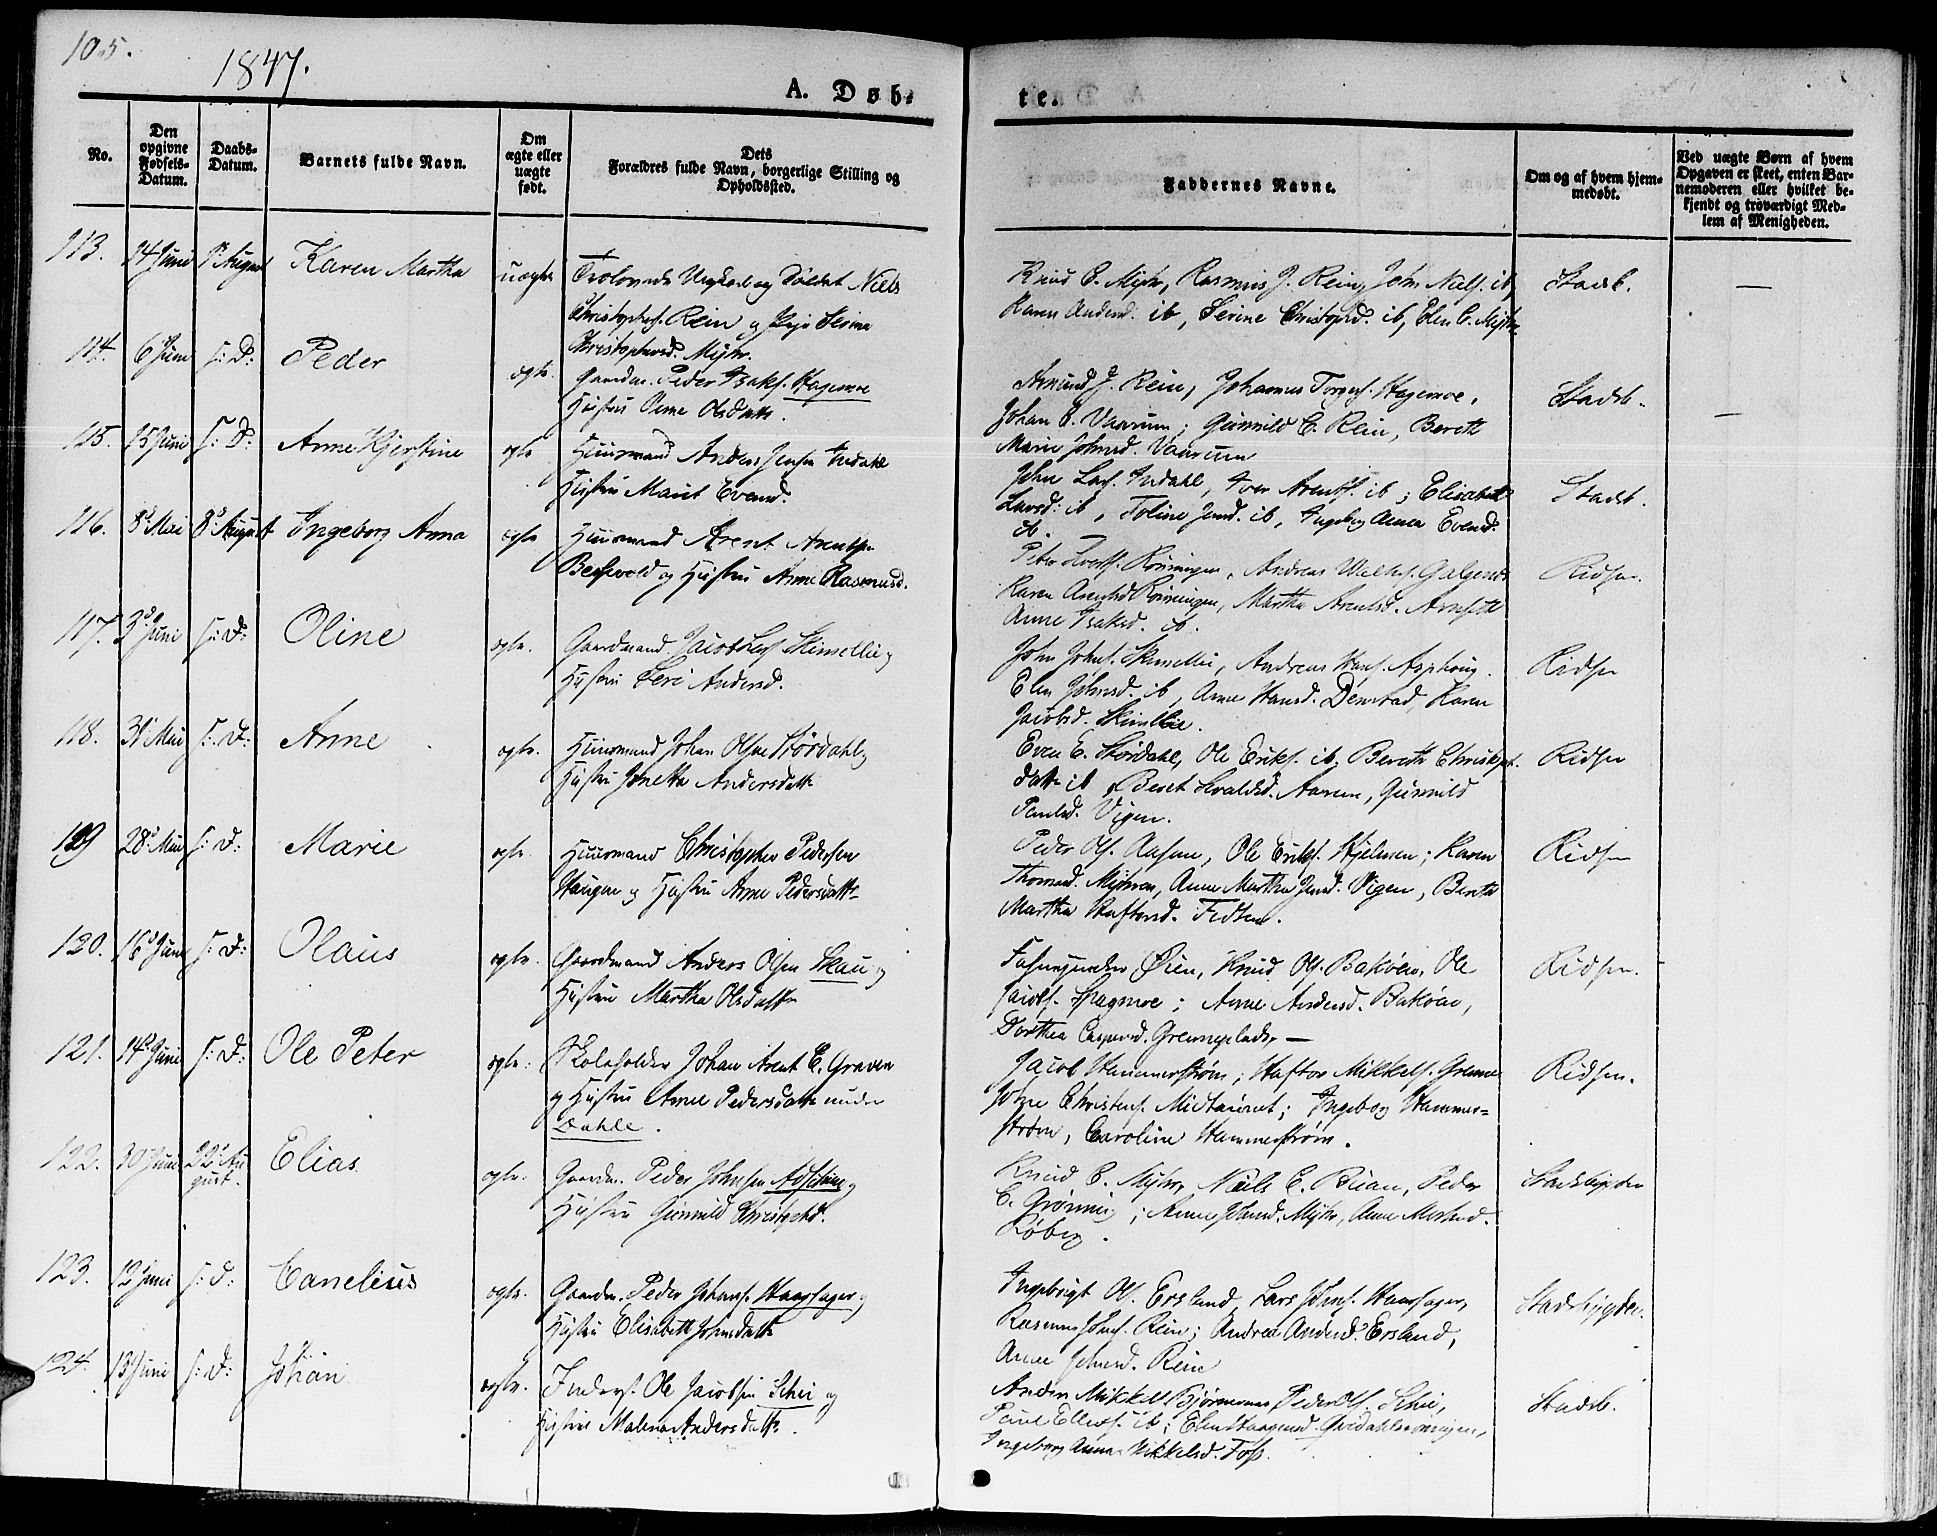 105.
1847.
A. Døb-
ten
No.
Den opgivne Fødsels-Datum.
Daabs-Datum.
Barnets fulde Navn.
Om ægte eller uægte født.
Dets Forældres fulde Navn, borgerlige Stilling og Opholdssted.
Faddernes Navne.
Om og af hvem hjem-medøbt.
Ved uægte Børn af hvem Opgaven er skeet, enten Bar-nemoderen eller hvilket be-kjendt og troværdigt Med-lem af Menigheden.
113. 14 Juni 1ste August Karen Martha uægte Trolovede Ungkarl og Soldat Niels
Christophers. Rein og Pige Serine
Christophersd. Myhr.
Knud C. Myhr, Rasmus J. Rein, John Niels. ib,
Karen Andersd. ib, Serine Christophd. ib, Elen C. Myhr
Stadsb. —
114. 6 Juni s: D: Peder ægte. Gaardm. Peder Isaks. Hagemoe
Hustru Olsdattr.
J. Rein, Johannes Hagemoe,
Johan C. Vaarum; Gunnild C. Rein, Bereth
Marie Johnsd. Vaarum
Stadsb. —
115. 15 Juni s: D: Anne Kjerstine ægte Huusmand Anders Jensen Indahl
Hustru Marit Evensd.
John Lars. Indahl, Iver Arents. ib; Elisabeth
Larsd. ib, Toline Jensd. ib, Ingeborg Anna Evensd.
ib. —
Stadsb.
116. 8de Mai 8de August Ingeborg Anna ægte Huusmand Arent Arentsen
Berfvold og Hustru Anne Rasmusd.
Peter Rønningen, Andreas
Karen Arentsd. Rønningen, Martha Arentsd.
Anne Isaksd. ib.
Ridsen.
117. 3d Juni s: D: Oline ægte. Gaardmand Jacob Skimellie og
Hustru Seri Andersd.
John Johns. Skimellie, Andreas Hans. Asphoug.
Elen Johnsd. ib, Anne Hansd. Denstad, Karen
Jacobsd. Skimellie.
Ridsen
118. 31 Mai s: D: Anne ægte. Huusmand Johan Olsen Størdahl og
Hustru Jonetta Andersdattr
Even E. Størdahl, Ole Eriks. ib, Bereth Christoph.
dattr ib, Beret Aarsen, Gunnild
Paulsd. Vigen.
Ridsen
119 28d Mai s: D: Marie ægte. Huusmand Christopher Pedersen
Haugen og Hustru Anne Pedersdattr
Peder Ol. Aasen, Ole Eriks. Hjelmen; Karen
Thomasd. Myhren, Anne Martha Jensd. Vigen, Bereth
Martha Haftorsd.
Ridsen
120. 16d Juni s: D: Olaus ægte. Gaardmand Anders Olsen Skau og
Hustru Martha Olsdattr
Øien, Knud Ols. Bakøen, Ole
Jacobs. Hagmoe; Anne Andersd. Bakøen,
Dorthea Caspersd. —
Ridsen.
121. 14d Juni s: D: Ole Peter ægte: Skoleholder Johan Arent E. Graven
og Hustru Anne Pedersdattr under
Dahle.
Jacob Hammerstrøm; Haftor Mikkels. Gremne
John Christens. ; Ingeborg Hammer-
strøm, Caroline Hammerstrøm.
Ridsen.
122. 30 Juni 22d Au-
gust. Elias ægte. Gaardm. Peder Johnsen og
Hustru Gunnild Christophd.
Knud C. Myhr, Niels C. Brian, Peder
C. Grønning; Anne Johnsd. Myhr, Anne
Røberg.
Stadsbygden
123. 12 Juni s: D: Canelius ægte. Gaardm. Peder Johans. Haarsager og
Hustru Elisabeth Johnsdattr
Ingebrigt Ol. Ersland, Lars Johns. Haarsager,
Rasmus Johns. Rein; Andrea Andersd. Ersland,
Anne Johnsd. Rein
Stadsbygden.
124. 13 Juni s: D: Johan ægte. Inderst. Ole Jacobsen Schei og
Hustru Malena Andersdattr.
Anders Mikkels. Bjørnemoe, Peder Ols. Schei,
Paul Ellefs. ib; Elen
Ingeborg Anna Mikkelsd. Foss.
Stadsb.